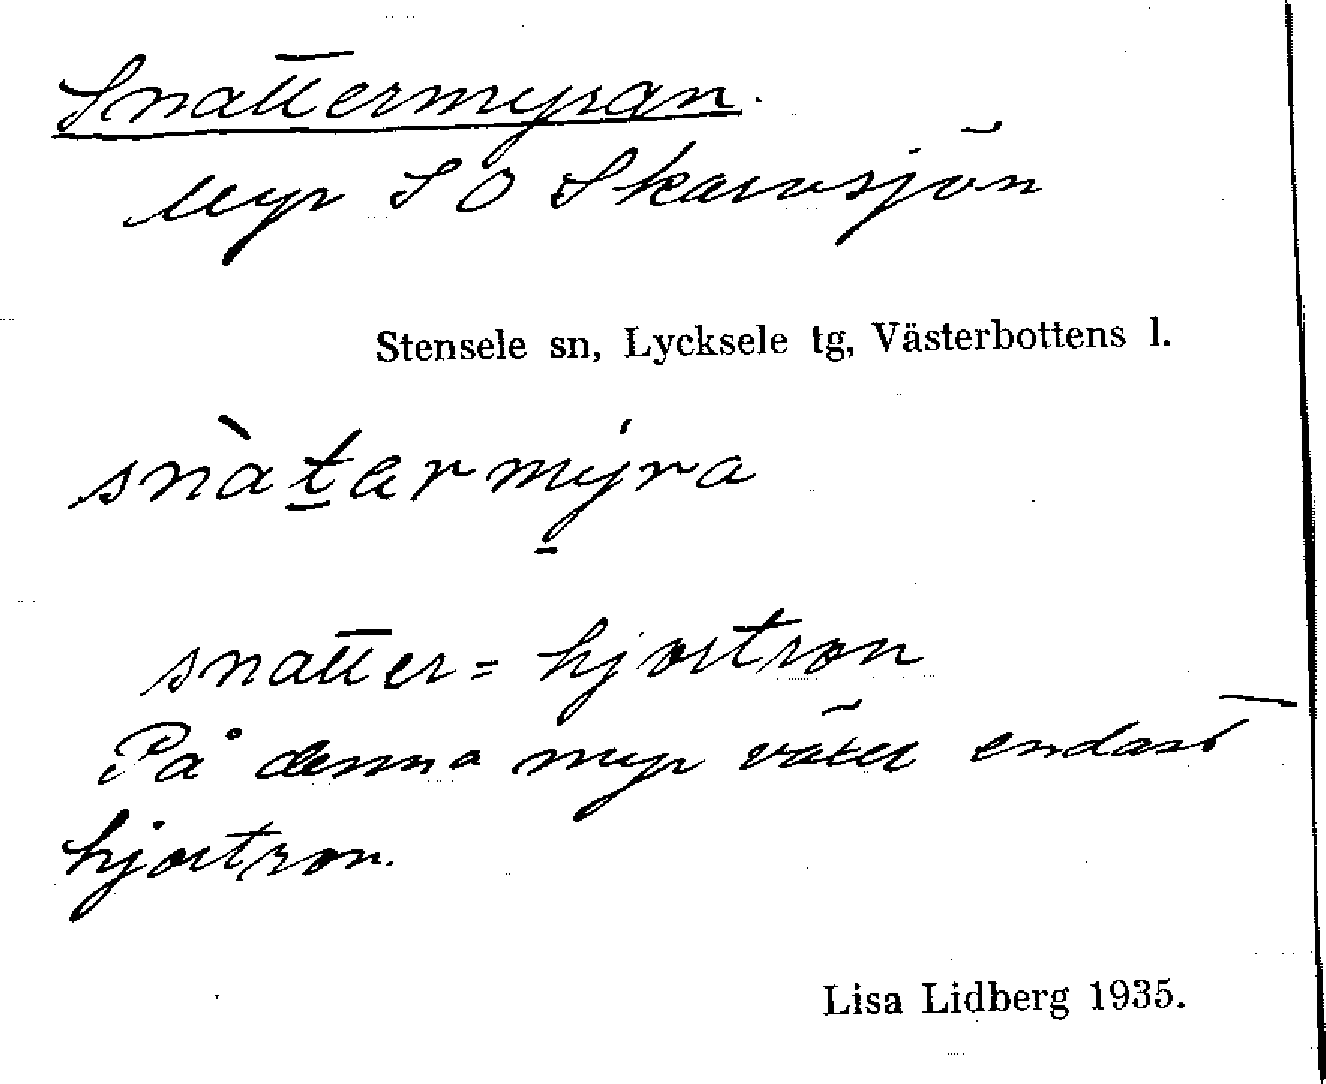 Snattermyran.
Myr SÖ Skarvsjön
Stensele sn, Lycksele tg, Västerbottens l.
snàt̲armý̲ra
snatter = hjortron
På denna myr växer endast
hjortron.
Lisa Lidberg 1935.